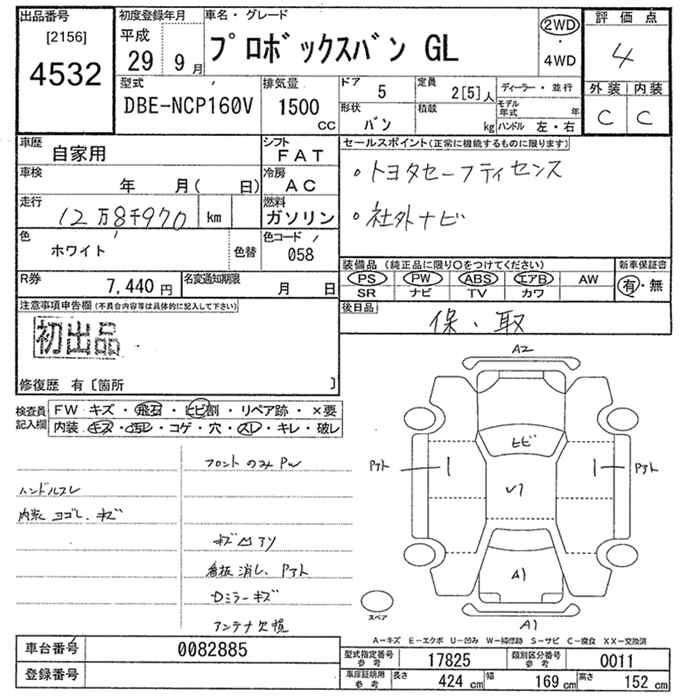 出品番号
[2156]
4532
初度登録年月
平成
29 9月
車名・グレード
プロボックスバン GL
2WD
・
4WD
評価点
4
外装 内装
C C
型式
DBE-NCP160V
排気量
1500 CC
ドア 5
形状 バン
定員 2[5]人
積載 kg
ディーラー・並行
モデル年式 年
ハンドル 左・右
車歴
自家用
シフト
FAT
車検
年 月( 日)
冷房
AC
走行
12万8千970 km
燃料
ガソリン
色
ホワイト
色替
色コード
058
セールスポイント(正常に機能するものに限ります)
・トヨタセーフティセンス
・社外ナビ
R券
7,440円
名変通知期限
月 日
装備品(純正品に限り○をつけてください)
PS PW ABS エアB AW
SR ナビ TV カワ
新車保証書
有・無
後日品
保・取
注意事項申告欄(不具合内容等は具体的に記入して下さい)
初出品
修復歴 有〔箇所 〕
検査員記入欄
FW キズ・飛石・ヒビ割・リペア跡・×要
内装 キズ・汚レ・コゲ・穴・スレ・キレ・破レ
フロントのみPW
ハンドルスレ
内装ヨゴレ、キズ
キズ凹アリ
看板消し、Pアト
Dミラーキズ
アンテナ欠損
A2
ヒビ
Pアト
Pアト
V1
A1
A1
スペア
A－キズ E－エクボ U－凹み W－補修跡 S－サビ C－腐食 XX－交換済
車台番号
0082885
登録番号
型式指定番号 参考
17825
類別区分番号 参考
0011
車庫証明用 参考
長さ 424 cm
幅 169 cm
高さ 152 cm